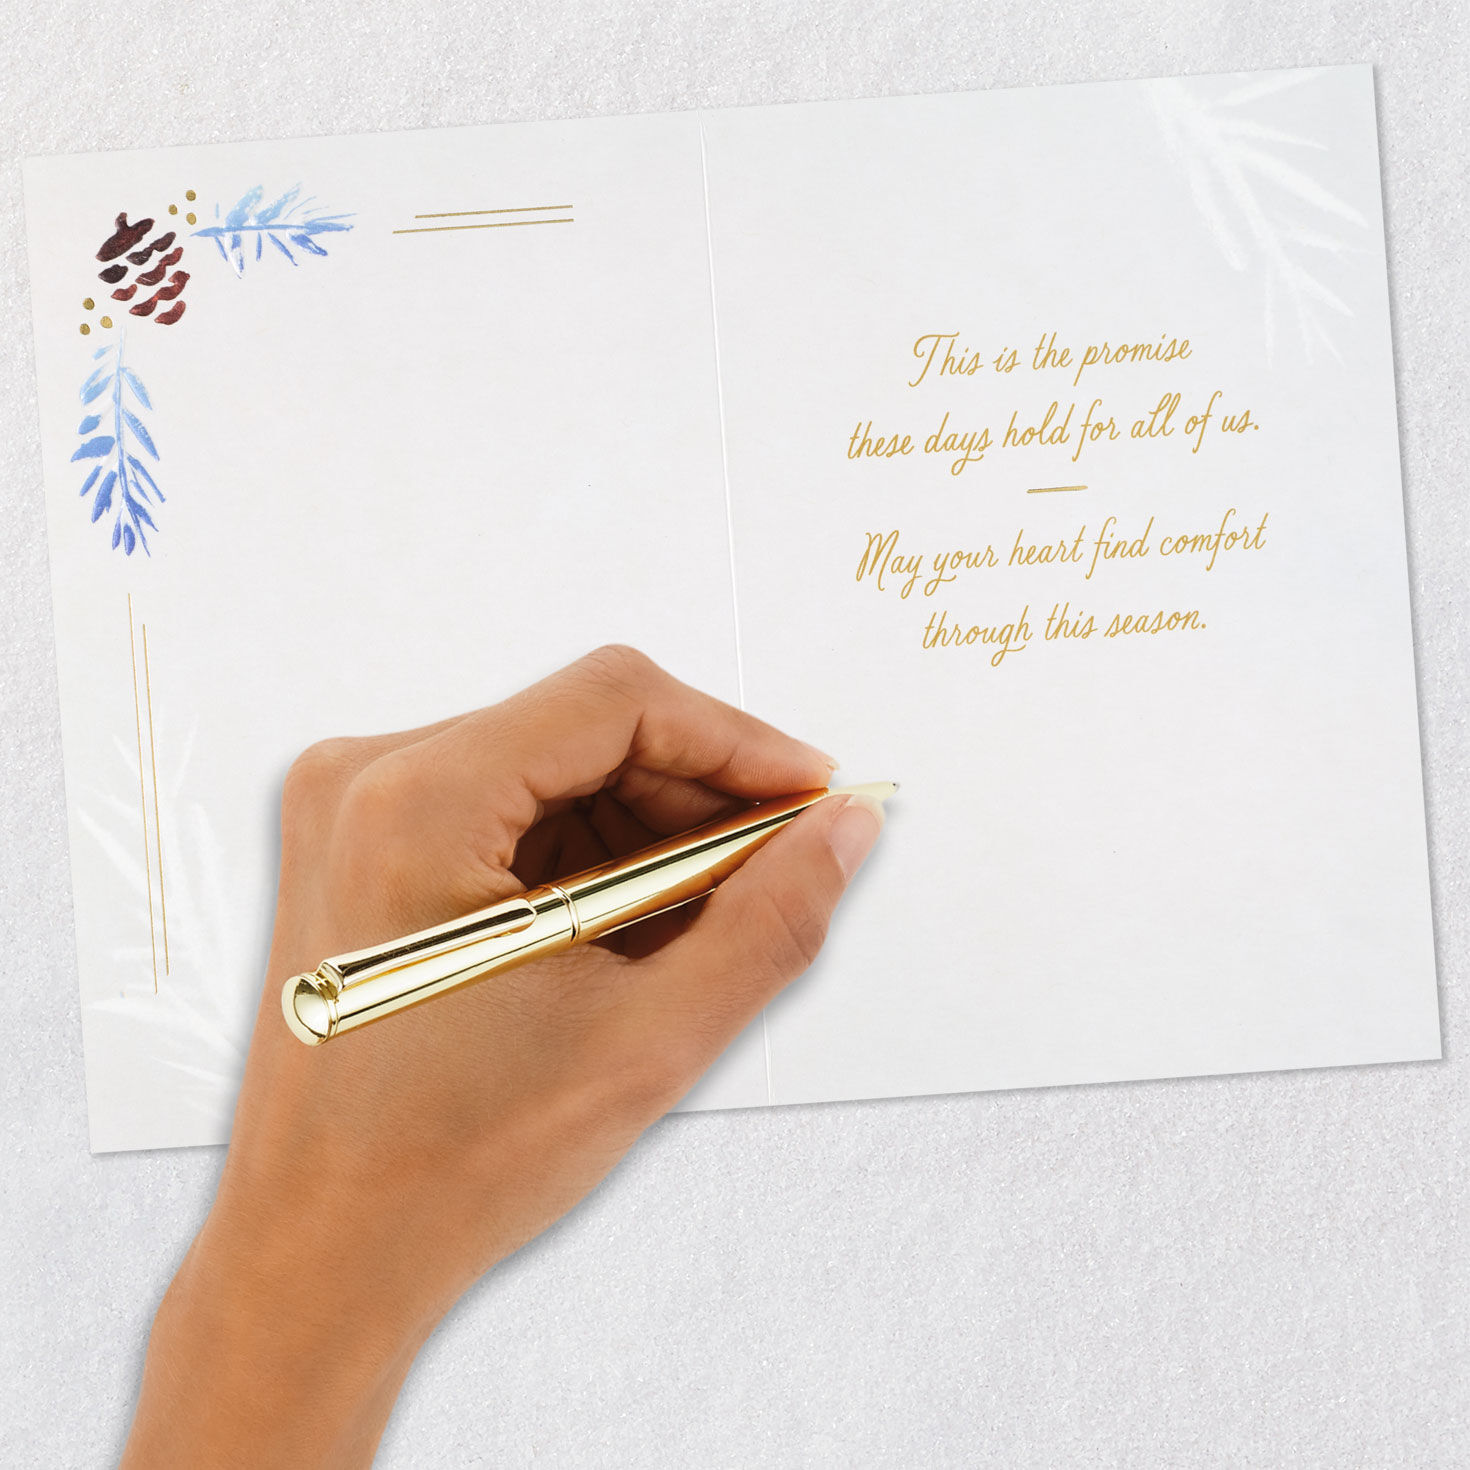 This is the promise
these days hold for all of us.
May your heart find comfort
through this season.